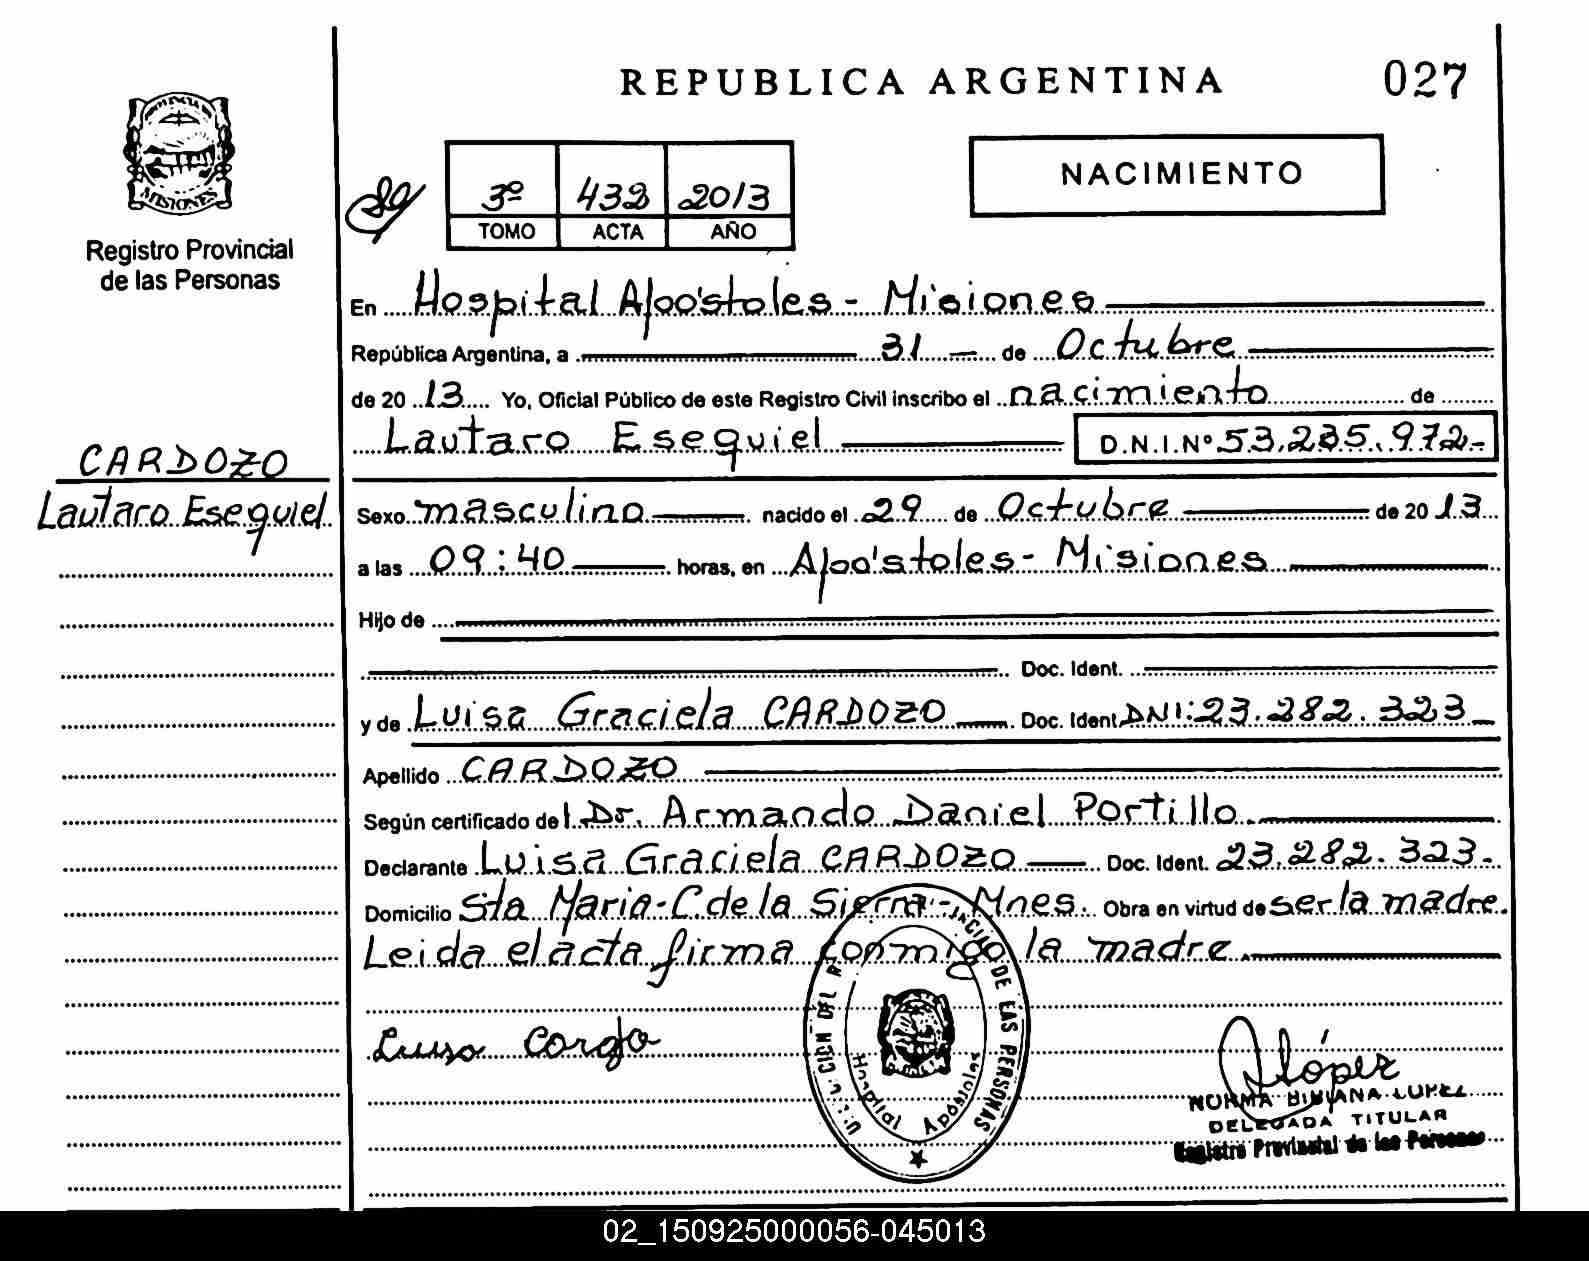 REPUBLICA ARGENTINA
027
MISIONES
Registro Provincial
de las Personas
3º 432 2013
TOMO ACTA AÑO
NACIMIENTO
En Hospital Apóstoles - Misiones
República Argentina, a 31 de Octubre
de 20 13 Yo, Oficial Público de este Registro Civil inscribo el nacimiento de
Lautaro Esequiel D.N.I.Nº 53.235.972.-
CARDOZO
Lautaro Esequiel
Sexo masculino nacido el 29 de Octubre de 20 13
a las 09:40 horas, en Apóstoles - Misiones
Hijo de
Doc. Ident.
y de Luisa Graciela CARDOZO Doc. Ident DNI: 23.282.323
Apellido CARDOZO
Según certificado del Dr. Armando Daniel Portillo
Declarante Luisa Graciela CARDOZO Doc. Ident. 23.282.323.-
Domicilio Sta Maria - C. de la Sierra - Mnes. Obra en virtud de ser la madre.
Leida el acta firma conmigo la madre
DE LAS PERSONAS
Hospital Apóstoles
López
NORMA BIBIANA LOPEZ
DELEGADA TITULAR
Registro Provincial de las Personas
02_150925000056-045013